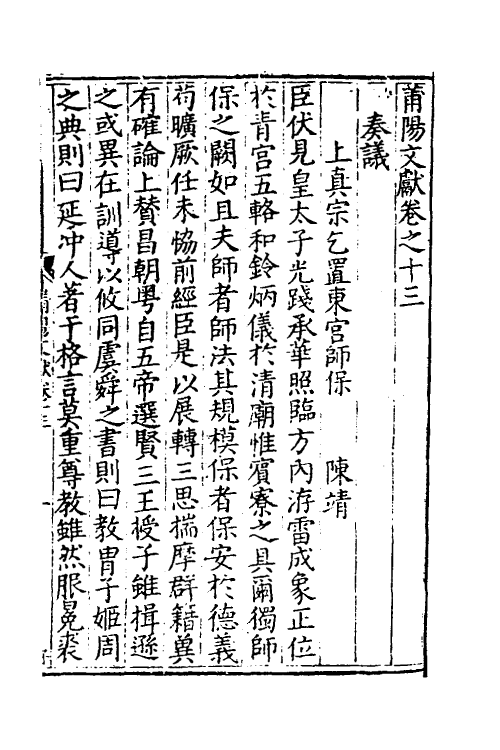 莆陽文獻卷之十三
奏議
上真宗乞置東宮師保 陳靖
臣伏見皇太子光踐承華照臨方內洊雷成象正位
於青宮五輅和鈴炳儀於清廟惟賓寮之具爾獨師
保之闕如且夫師者師法其規模保者保安於德義
苟曠厥任未恊前經臣是以展轉三思揣摩群籍兾
有確論上賛昌朝粤自五帝選賢三王授子雖揖遜
之或異在訓導以攸同虞舜之書則曰教胄子姬周
之典則曰延冲人著于格言莫重尊教雖然服冕裘